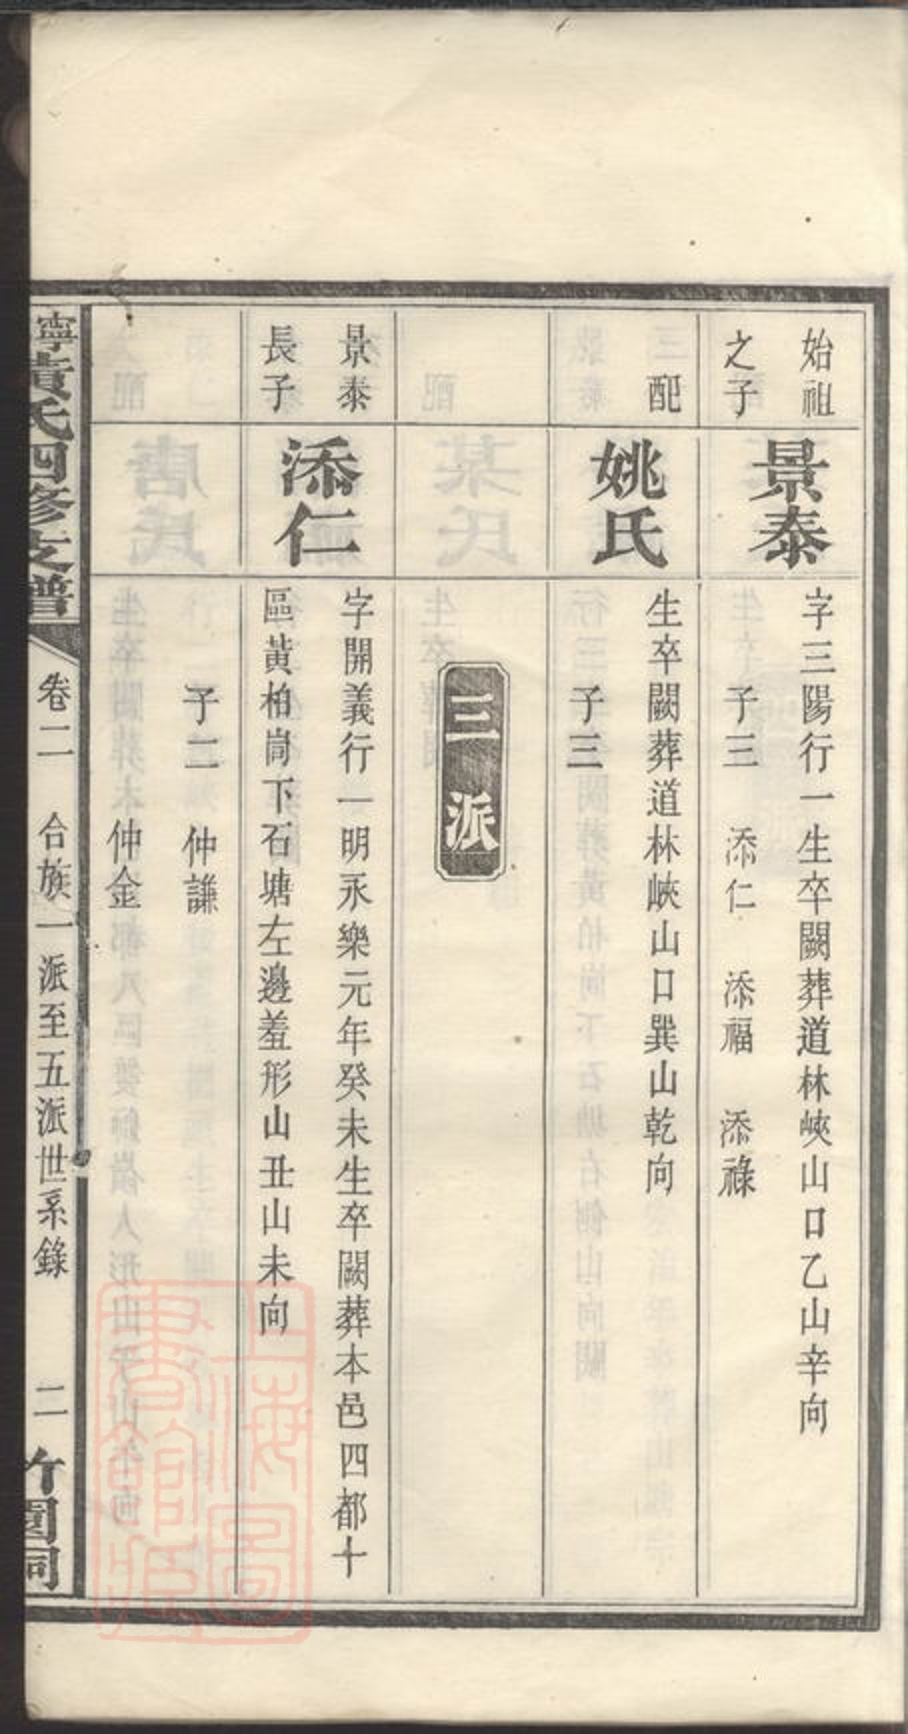 始祖
之子
景泰
字三陽行一生卒闕葬道林峽山口乙山辛向
子三 添仁 添福 添祿
配
姚氏
生卒闕葬道林峽山口巽山乾向
子三
三派
景泰
長子
添仁
字開義行一明永樂元年癸未生卒闕葬本邑四都十
區黃柏崗下石塘左邊羞形山丑山未向
子二 仲謙
仲金
寧黃氏四修支譜
卷二 合族一派至五派世系錄 二
竹園祠
上海圖
書館藏